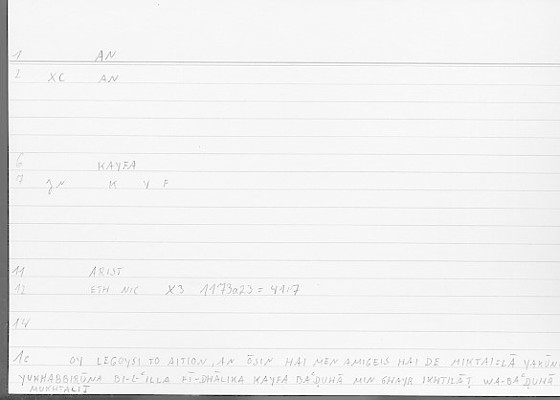 1 AN
2 XC AN
6 KAYFA
7 K Y F
11 ARIST
12 ETH NIC X3 1173a23 = 411:7
14
1c OY LEGOYSI TO AITION, AN ŌSIN HAI MEN AMIGEIS HAI DE MIKTAI = LĀ YAKŪN
YUKHABBIRŪNA BI-L-ʿILLA FĪ-DHĀLIKA KAYFA BAʿḌUHĀ MIN GHAYR IKHTILĀṬ WA-BAʿḌUHĀ
MUKHTALIṬ